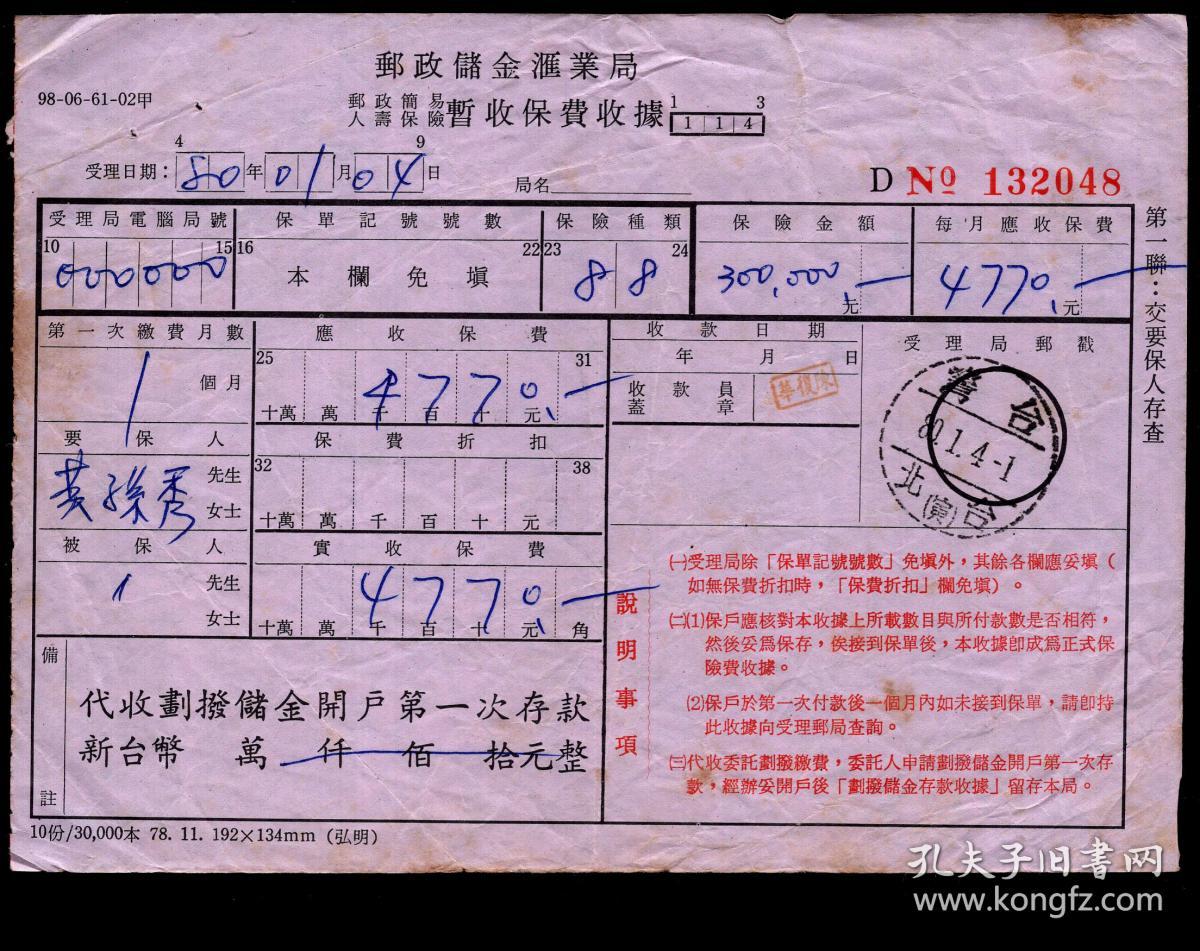 郵政儲金滙業局
98-06-61-02甲
郵政簡易人壽保險 暫收保費收據
1 3
1 1 4
4 9
受理日期：80年01月04日
局名
D № 132048
第一聯：交要保人存查
受理局電腦局號
10 15
000000
保單記號號數
16 22
本欄免塡
保險種類
23 24
88
保險金額
300,000.—元
每月應收保費
4770.—元
第一次繳費月數
1 個月
應收保費
25 31
4770.—
十萬 萬 千 百 十 元
要保人
先生
女士
保費折扣
32 38
十萬 萬 千 百 十 元
被保人
先生
女士
實收保費
4770.—
十萬 萬 千 百 十 元 角
收款日期
年 月 日
收款員蓋章
受理局郵戳
台
80.1.4-1
台北
說明事項
㈠受理局除「保單記號號數」免塡外，其餘各欄應妥塡（
如無保費折扣時，「保費折扣」欄免塡）。
㈡⑴保戶應核對本收據上所載數目與所付款數是否相符，
然後妥爲保存，俟接到保單後，本收據卽成爲正式保
險費收據。
⑵保戶於第一次付款後一個月內如未接到保單，請卽持
此收據向受理郵局查詢。
㈢代收委託劃撥繳費，委託人申請劃撥儲金開戶第一次存
款，經辦妥開戶後「劃撥儲金存款收據」留存本局。
備註
代收劃撥儲金開戶第一次存款
新台幣 萬 仟 佰 拾元整
10份/30,000本 78. 11. 192×134mm（弘明）
孔夫子旧书网
www.kongfz.com